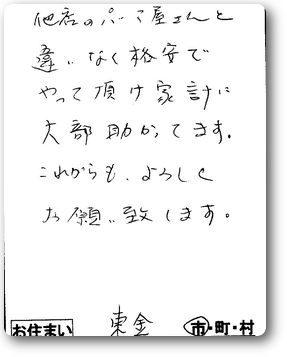 他店のパーマ屋さんと
違いなく格安で
やって頂け家計に
大部助かってます。
これからも、よろしく
お願い致します。
お住まい 東金 市・町・村